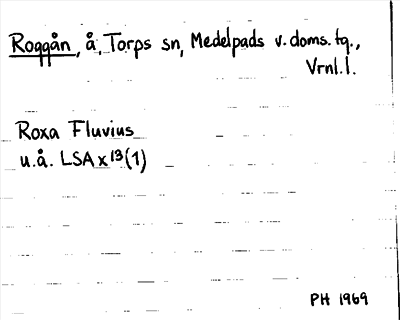 Roggån, å, Torps sn, Medelpads v. doms. tg.,
Vrnl. l.
Roxa Fluvius
u.å. LSA x 13 (1)
PH 1969